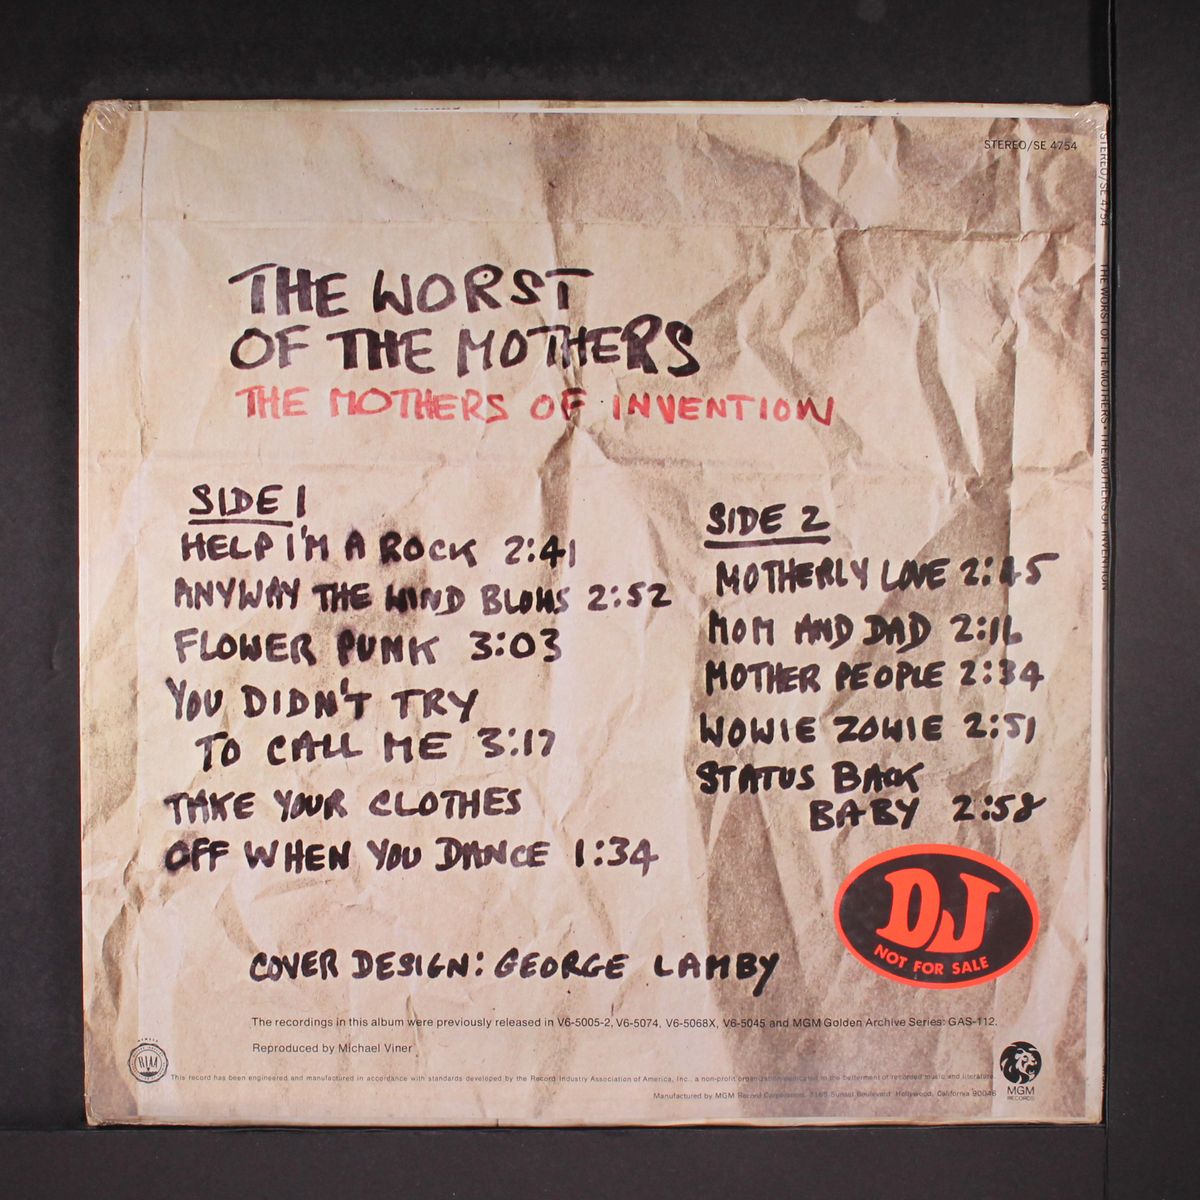 STEREO/SE 4754
THE WORST
OF THE MOTHERS
THE MOTHERS OF INVENTION
SIDE 1
HELP I'M A ROCK 2:41
ANYWAY THE WIND BLOWS 2:52
FLOWER PUNK 3:03
YOU DIDN'T TRY
TO CALL ME 3:17
TAKE YOUR CLOTHES
OFF WHEN YOU DANCE 1:34
SIDE 2
MOTHERLY LOVE 2:45
MOM AND DAD 2:16
MOTHER PEOPLE 2:34
WOWIE ZOWIE 2:51
STATUS BACK
BABY 2:58
COVER DESIGN: GEORGE LAMBY
DJ
NOT FOR SALE
The recordings in this album were previously released in V6-5005-2, V6-5074, V6-5068X, V6-5045 and MGM Golden Archive Series: GAS-112.
Reproduced by Michael Viner
MEMBER
RIAA
This record has been engineered and manufactured in accordance with standards developed by the Record Industry Association of America, Inc., a non-profit organization dedicated to the betterment of recorded music and literature.
Manufactured by MGM Record Corporation, 7165 Sunset Boulevard Hollywood, California 90046
MGM
RECORDS
STEREO/SE 4754
THE WORST OF THE MOTHERS • THE MOTHERS OF INVENTION